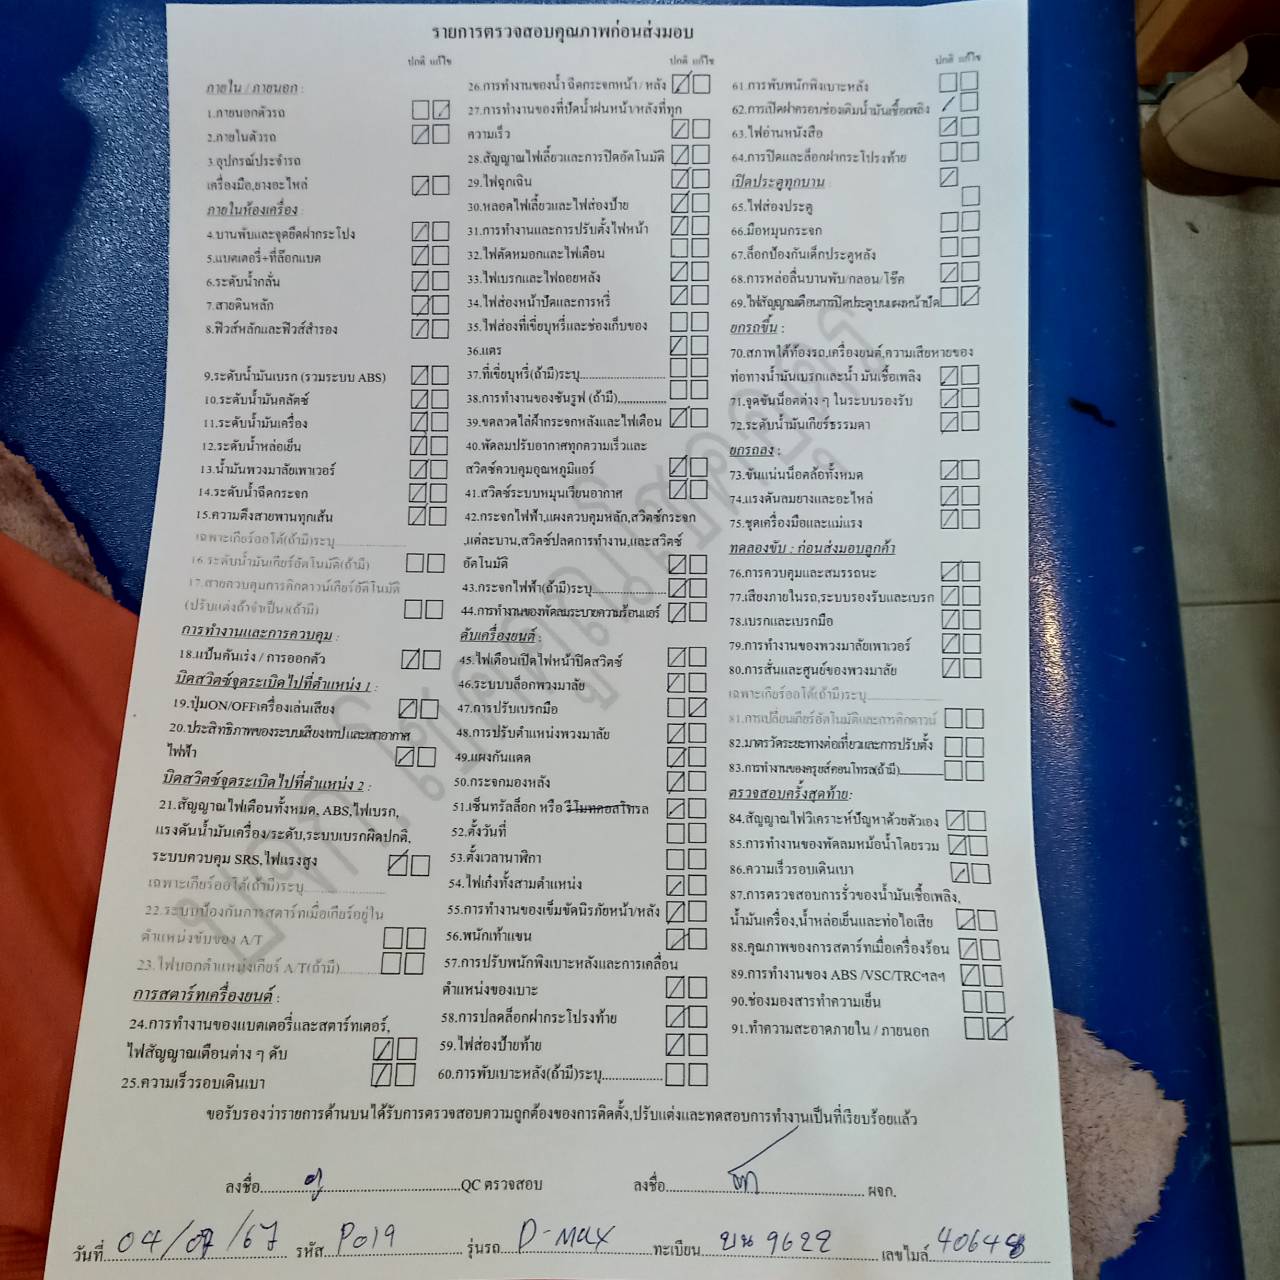 รายการตรวจสอบคุณภาพก่อนส่งมอบ
ปกติ แก้ไข
ภายใน / ภายนอก :
1.ภายนอกตัวรถ
2.ภายในตัวรถ
3.อุปกรณ์ประจำรถ
เครื่องมือ,ยางอะไหล่
ภายในห้องเครื่อง :
4.บานพับและจุดยึดฝากระโปง
5.แบตเตอรี่+ที่ล๊อกแบต
6.ระดับน้ำกลั่น
7.สายดินหลัก
8.ฟิวส์หลักและฟิวส์สำรอง
9.ระดับน้ำมันเบรก (รวมระบบ ABS)
10.ระดับน้ำมันคลัตช์
11.ระดับน้ำมันเครื่อง
12.ระดับน้ำหล่อเย็น
13.น้ำมันพวงมาลัยเพาเวอร์
14.ระดับน้ำฉีดกระจก
15.ความตึงสายพานทุกเส้น
เฉพาะเกียร์ออโต้(ถ้ามี)ระบุ
16.ระดับน้ำมันเกียร์อัตโนมัติ(ถ้ามี)
17.สายควบคุมการคิกดาวน์เกียร์อัตโนมัติ
(ปรับแต่งถ้าจำเป็น)(ถ้ามี)
การทำงานและการควบคุม :
18.แป้นคันเร่ง / การออกตัว
บิดสวิตซ์จุดระเบิดไปที่ตำแหน่ง 1 :
19.ปุ่มON/OFFเครื่องเล่นเสียง
20.ประสิทธิภาพของระบบเสียงเทปและเสาอากาศ
ไฟฟ้า
บิดสวิตซ์จุดระเบิดไปที่ตำแหน่ง 2 :
21.สัญญาณไฟเตือนทั้งหมด, ABS,ไฟเบรก,
แรงดันน้ำมันเครื่อง/ระดับ,ระบบเบรกผิดปกติ,
ระบบควบคุม SRS,ไฟแรงสูง
เฉพาะเกียร์ออโต้(ถ้ามี)ระบุ
22.ระบบป้องกันการสตาร์ทเมื่อเกียร์อยู่ใน
ตำแหน่งขับของ A/T
23.ไฟบอกตำแหน่งเกียร์ A/T(ถ้ามี)
การสตาร์ทเครื่องยนต์ :
24.การทำงานของแบตเตอรี่และสตาร์ทเตอร์,
ไฟสัญญาณเตือนต่าง ๆ ดับ
25.ความเร็วรอบเดินเบา
ปกติ แก้ไข
26.การทำงานของน้ำ ฉีดกระจกหน้า / หลัง
27.การทำงานของที่ปัดน้ำฝนหน้า/หลังที่ทุก
ความเร็ว
28.สัญญาณไฟเลี้ยวและการปิดอัตโนมัติ
29.ไฟฉุกเฉิน
30.หลอดไฟเลี้ยวและไฟส่องป้าย
31.การทำงานและการปรับตั้งไฟหน้า
32.ไฟตัดหมอกและไฟเตือน
33.ไฟเบรกและไฟถอยหลัง
34.ไฟส่องหน้าปัดและการหรี่
35.ไฟส่องที่เขี่ยบุหรี่และช่องเก็บของ
36.แตร
37.ที่เขี่ยบุหรี่(ถ้ามี)ระบุ
38.การทำงานของซันรูฟ (ถ้ามี)
39.ขดลวดไล่ฝ้ากระจกหลังและไฟเตือน
40.พัดลมปรับอากาศทุกความเร็วและ
สวิตซ์ควบคุมอุณหภูมิแอร์
41.สวิตซ์ระบบหมุนเวียนอากาศ
42.กระจกไฟฟ้า,แผงควบคุมหลัก,สวิตซ์กระจก
,แต่ละบาน,สวิตซ์ปลดการทำงาน,และสวิตซ์
อัตโนมัติ
43.กระจกไฟฟ้า(ถ้ามี)ระบุ
44.การทำงานของพัดลมระบายความร้อนแอร์
ดับเครื่องยนต์ :
45.ไฟเตือนเปิดไฟหน้าปิดสวิตซ์
46.ระบบบล็อกพวงมาลัย
47.การปรับเบรกมือ
48.การปรับตำแหน่งพวงมาลัย
49.แผงกันแดด
50.กระจกมองหลัง
51.เซ็นทรัลล็อก หรือ รีโมทคอลโทรล
52.ตั้งวันที่
53.ตั้งเวลานาฬิกา
54.ไฟเก๋งทั้งสามตำแหน่ง
55.การทำงานของเข็มขัดนิรภัยหน้า/หลัง
56.พนักเท้าแขน
57.การปรับพนักพิงเบาะหลังและการเคลื่อน
ตำแหน่งของเบาะ
58.การปลดล็อกฝากระโปรงท้าย
59.ไฟส่องป้ายท้าย
60.การพับเบาะหลัง(ถ้ามี)ระบุ
ปกติ แก้ไข
61.การพับพนักพิงเบาะหลัง
62.การเปิดฝาครอบช่องเติมน้ำมันเชื้อเพลิง
63.ไฟอ่านหนังสือ
64.การปิดและล็อกฝากระโปรงท้าย
เปิดประตูทุกบาน :
65.ไฟส่องประตู
66.มือหมุนกระจก
67.ล็อกป้องกันเด็กประตูหลัง
68.การหล่อลื่นบานพับ/กลอน/โช๊ค
69.ไฟสัญญาณเตือนการปิดประตูบนแผงหน้าปัด
ยกรถขึ้น :
70.สภาพใต้ท้องรถ,เครื่องยนต์,ความเสียหายของ
ท่อทางน้ำมันเบรกและน้ำ มันเชื้อเพลิง
71.จุดขันน็อตต่าง ๆ ในระบบรองรับ
72.ระดับน้ำมันเกียร์ธรรมดา
ยกรถลง :
73.ขันแน่นน็อตล้อทั้งหมด
74.แรงดันลมยางและอะไหล่
75.ชุดเครื่องมือและแม่แรง
ทดลองขับ : ก่อนส่งมอบลูกค้า
76.การควบคุมและสมรรถนะ
77.เสียงภายในรถ,ระบบรองรับและเบรก
78.เบรกและเบรกมือ
79.การทำงานของพวงมาลัยเพาเวอร์
80.การสั่นและศูนย์ของพวงมาลัย
เฉพาะเกียร์ออโต้(ถ้ามี)ระบุ
81.การเปลี่ยนเกียร์อัตโนมัติและการคิกดาวน์
82.มาตรวัดระยะทางต่อเที่ยวและการปรับตั้ง
83.การทำงานของครูยส์คอนโทรล(ถ้ามี)
ตรวจสอบครั้งสุดท้าย:
84.สัญญาณไฟวิเคราะห์ปัญหาด้วยตัวเอง
85.การทำงานของพัดลมหม้อน้ำโดยรวม
86.ความเร็วรอบเดินเบา
87.การตรวจสอบการรั่วของน้ำมันเชื้อเพลิง,
น้ำมันเครื่อง,น้ำหล่อเย็นและท่อไอเสีย
88.คุณภาพของการสตาร์ทเมื่อเครื่องร้อน
89.การทำงานของ ABS /VSC/TRCฯลฯ
90.ช่องมองสารทำความเย็น
91.ทำความสะอาดภายใน / ภายนอก
ขอรับรองว่ารายการด้านบนได้รับการตรวจสอบความถูกต้องของการติดตั้ง,ปรับแต่งและทดสอบการทำงานเป็นที่เรียบร้อยแล้ว
ลงชื่อ QC ตรวจสอบ ลงชื่อ ผจก.
วันที่ 04/07/67 รหัส P019 รุ่นรถ D-MAX ทะเบียน บน 9622 เลขไมล์ 40648